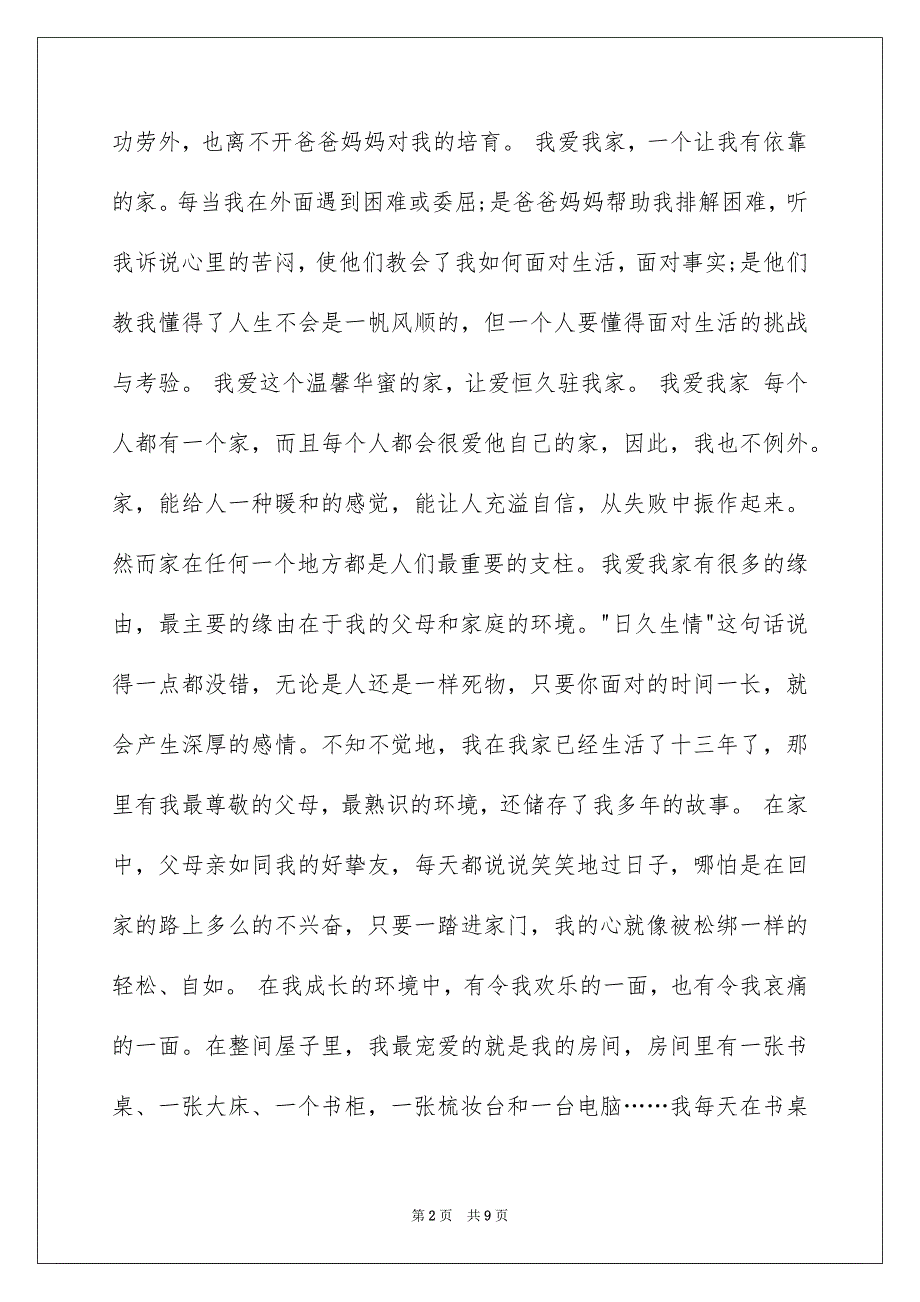 功劳外，也离不开爸爸妈妈对我的培育。 我爱我家，一个让我有依靠
的家。每当我在外面遇到困难或委屈;是爸爸妈妈帮助我排解困难，听
我诉说心里的苦闷，使他们教会了我如何面对生活，面对事实;是他们
教我懂得了人生不会是一帆风顺的，但一个人要懂得面对生活的挑战
与考验。 我爱这个温馨华蜜的家，让爱恒久驻我家。 我爱我家 每个
人都有一个家，而且每个人都会很爱他自己的家，因此，我也不例外。
家，能给人一种暖和的感觉，能让人充溢自信，从失败中振作起来。
然而家在任何一个地方都是人们最重要的支柱。我爱我家有很多的缘
由，最主要的缘由在于我的父母和家庭的环境。"日久生情"这句话说
得一点都没错，无论是人还是一样死物，只要你面对的时间一长，就
会产生深厚的感情。不知不觉地，我在我家已经生活了十三年了，那
里有我最尊敬的父母，最熟识的环境，还储存了我多年的故事。 在家
中，父母亲如同我的好挚友，每天都说说笑笑地过日子，哪怕是在回
家的路上多么的不兴奋，只要一踏进家门，我的心就像被松绑一样的
轻松、自如。 在我成长的环境中，有令我欢乐的一面，也有令我哀痛
的一面。在整间屋子里，我最宠爱的就是我的房间，房间里有一张书
桌、一张大床、一个书柜，一张梳妆台和一台电脑……我每天在书桌
第2页 共9页